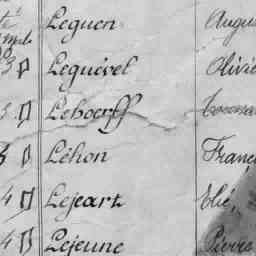 Leguen Augu
Leguével Olivie
Lehoerff
Léhon Franç
4 Lejeart Elié,
4 Lejeune Pierre